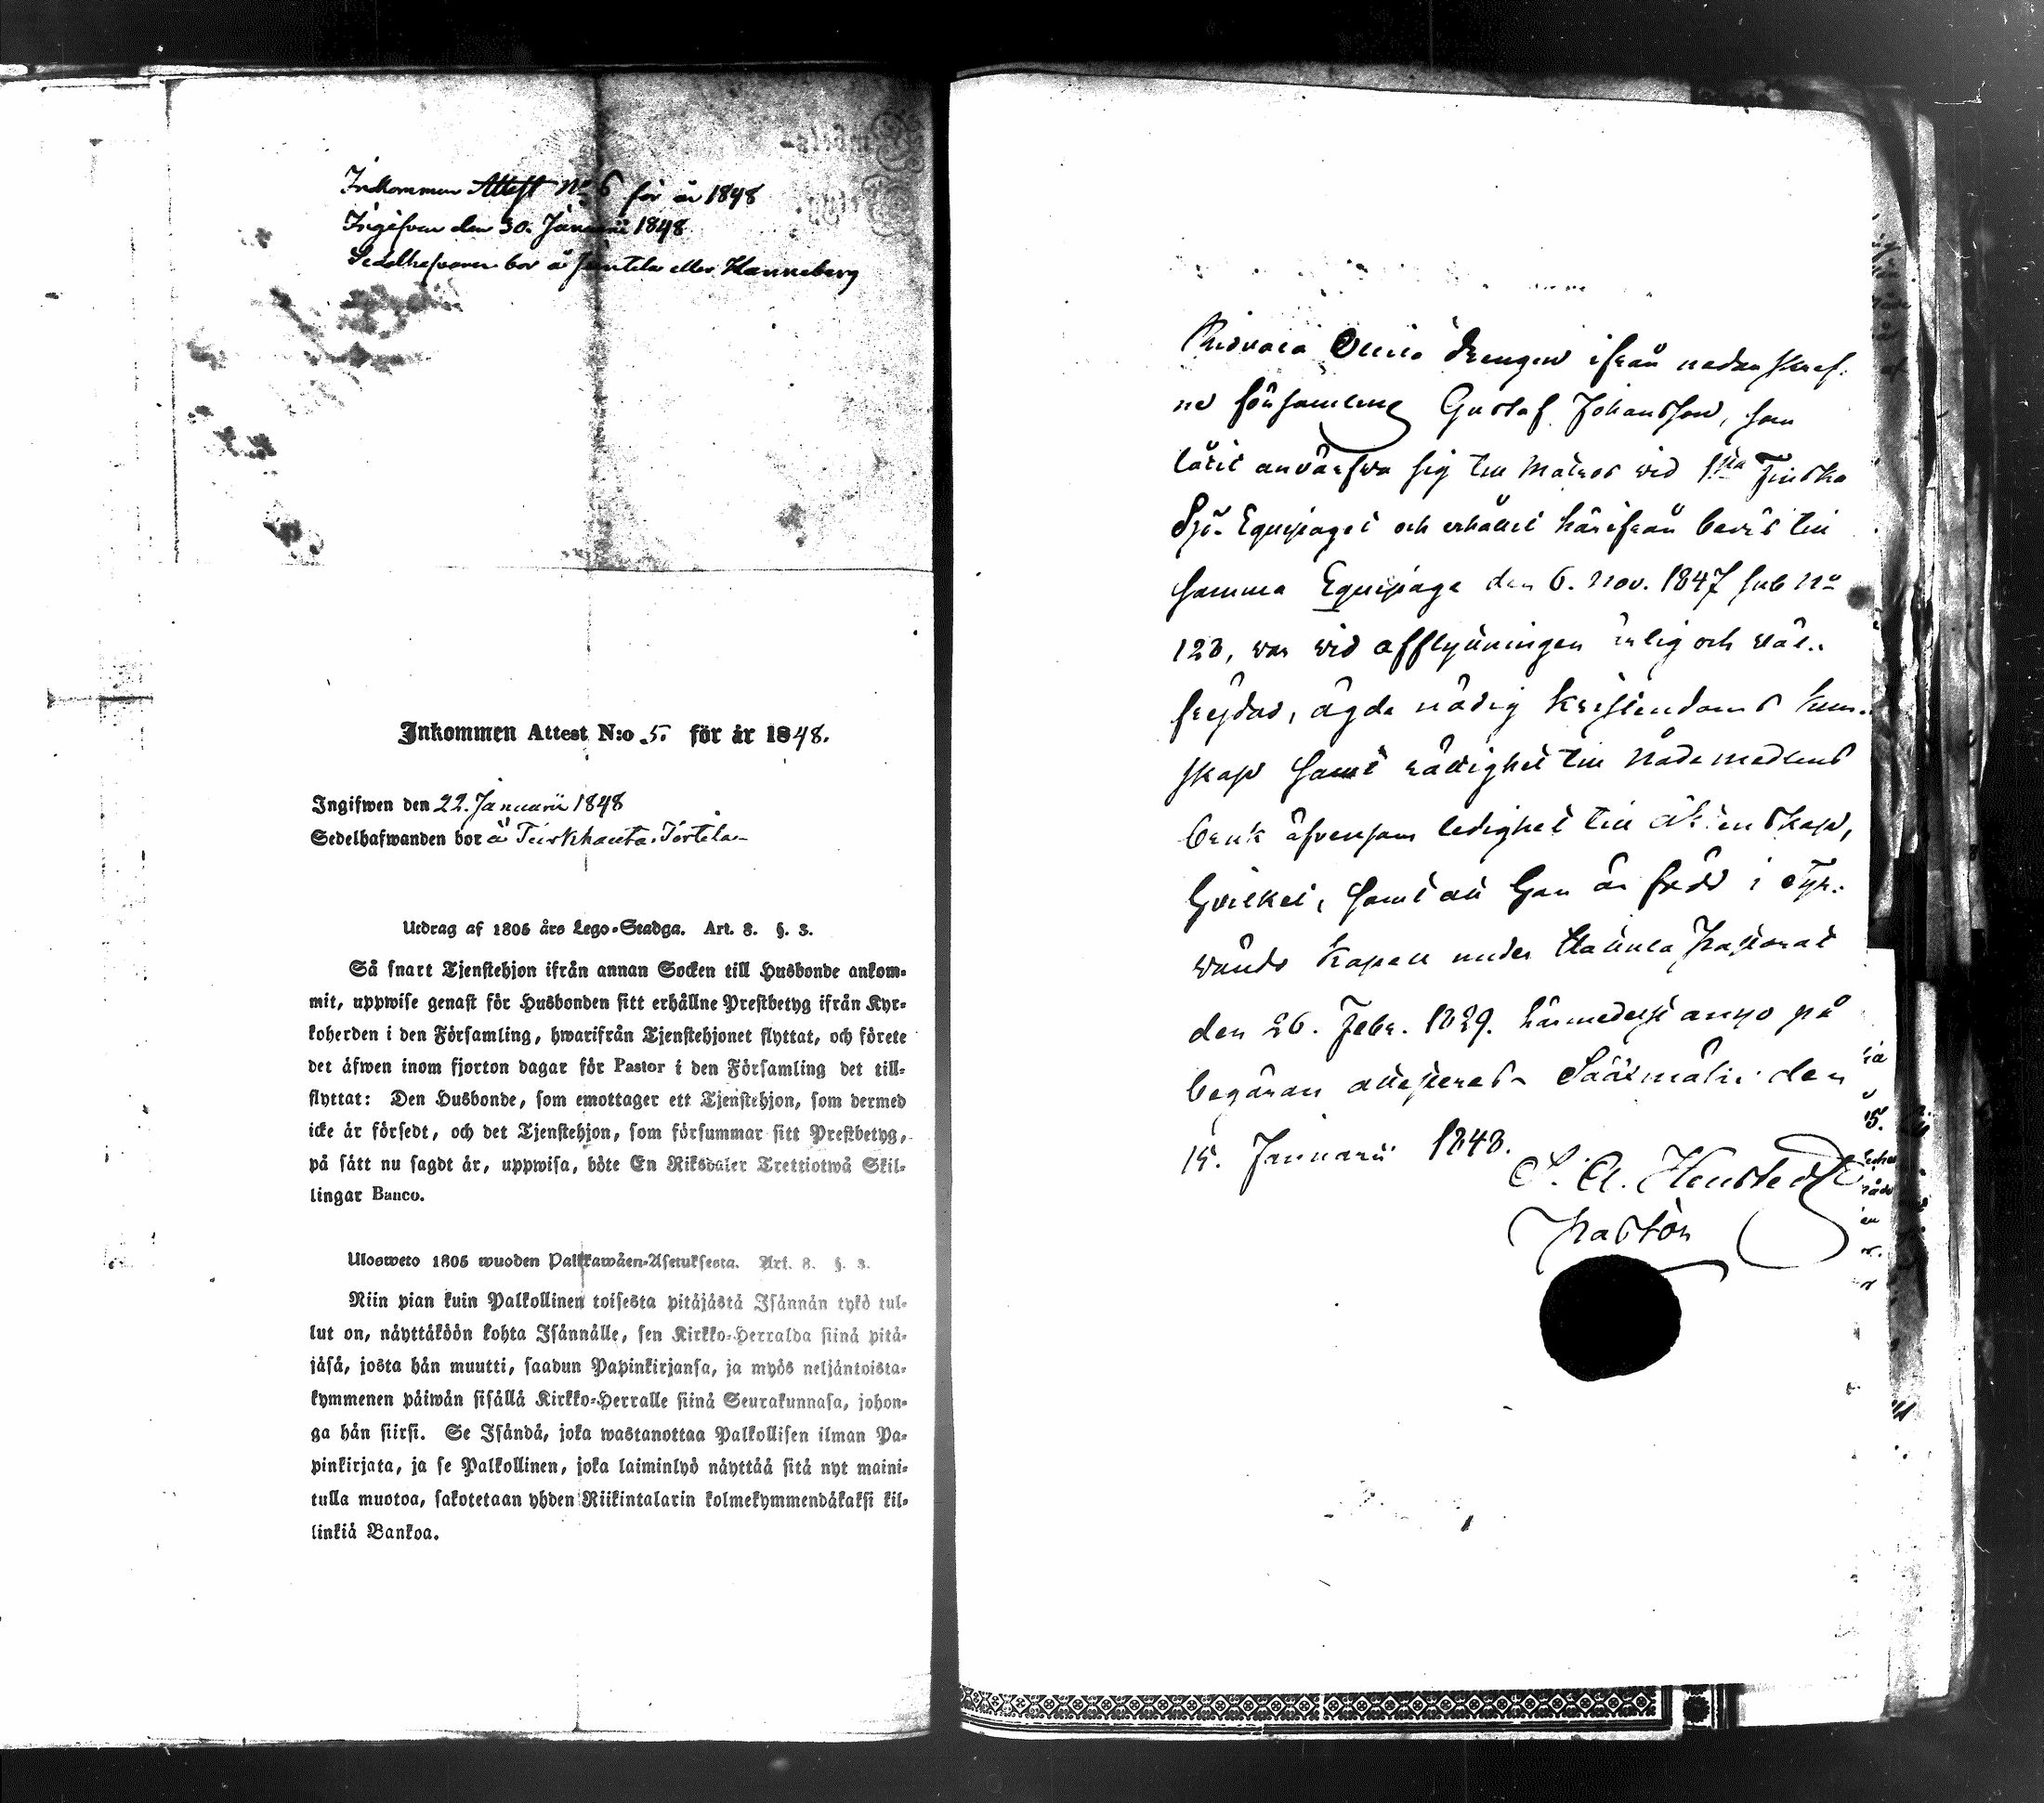 Inkommen Attest No 6 för år 1848
Ingifven den 30. Januarii 1848
Sedelhafvaren bor å Juntila eller Hanneberg
Inkommen Attest N:o 5. för år 1848.
Ingifwen den 22. Januarii 1848
Sedelhafwanden bor å Turkhauta. Törtilä
Utdrag af 1805 års Lego-Stadga. Art. 8. §. 3.
Så snart Tjenstehjon ifrån annan Socken till Husbonde ankom-
mit, uppwise genast för Husbonden sitt erhållne Prestbetyg ifrån Kyr-
koherden i den Församling, hwarifrån Tjenstehjonet flyttat, och förete
det äfwen inom fjorton dagar för Pastor i den Församling det till-
flyttat: Den Husbonde, som emottager ett Tjenstehjon, som dermed
icke är försedt, och det Tjenstehjon, som försummar sitt Prestbetyg,
på sätt nu sagdt är, uppwisa, böte En Riksdaler Trettiotwå Skil-
lingar Banco.
Ulosweto 1805 wuoden Palkkawäen-Asetuksesta. Art. 8. §. 3.
Niin pian kuin Palkollinen toisesta pitäjästä Isännän tykö tul-
lut on, näyttäköön kohta Isännälle, sen Kirkko-Herralda siinä pitä-
jäsä, josta hän muutti, saadun Papinkirjansa, ja myös neljäntoista-
kymmenen päiwän sisällä Kirkko-Herralle siinä Seurakunnasa, johon-
ga hän siirsi. Se Isändä, joka wastanottaa Palkollisen ilman Pa-
pinkirjata, ja se Palkollinen, joka laiminlyö näyttää sitä nyt maini-
tulla muotoa, sakotetaan yhden Riikintalarin kolmekymmendäkaksi kil-
linkiä Bankoa.
drengen ifrån nedanskref-
ne församling Gustaf Johansson, som
låtit anvärfva sig till Matros vid 1sta Finska
Sjö-Equipaget och erhållit härifrån bevis till
samma Equipage den 6. Nov. 1847 sub No
123, var vid afflyttningen ärlig och väl-
frejdad, ägde nödig kristendoms kun-
skap samt rättighet till Nådemedlens
bruk äfvensom ledighet till äktenskap,
hvilket, samt att han är född i Tyr-
vändö Kapell under Hattula Pastorat
den 26. Febr. 1829. härmedelst annyo på
begäran attesteras. Sääxmäki den
15. Januarii 1848.
Pastor